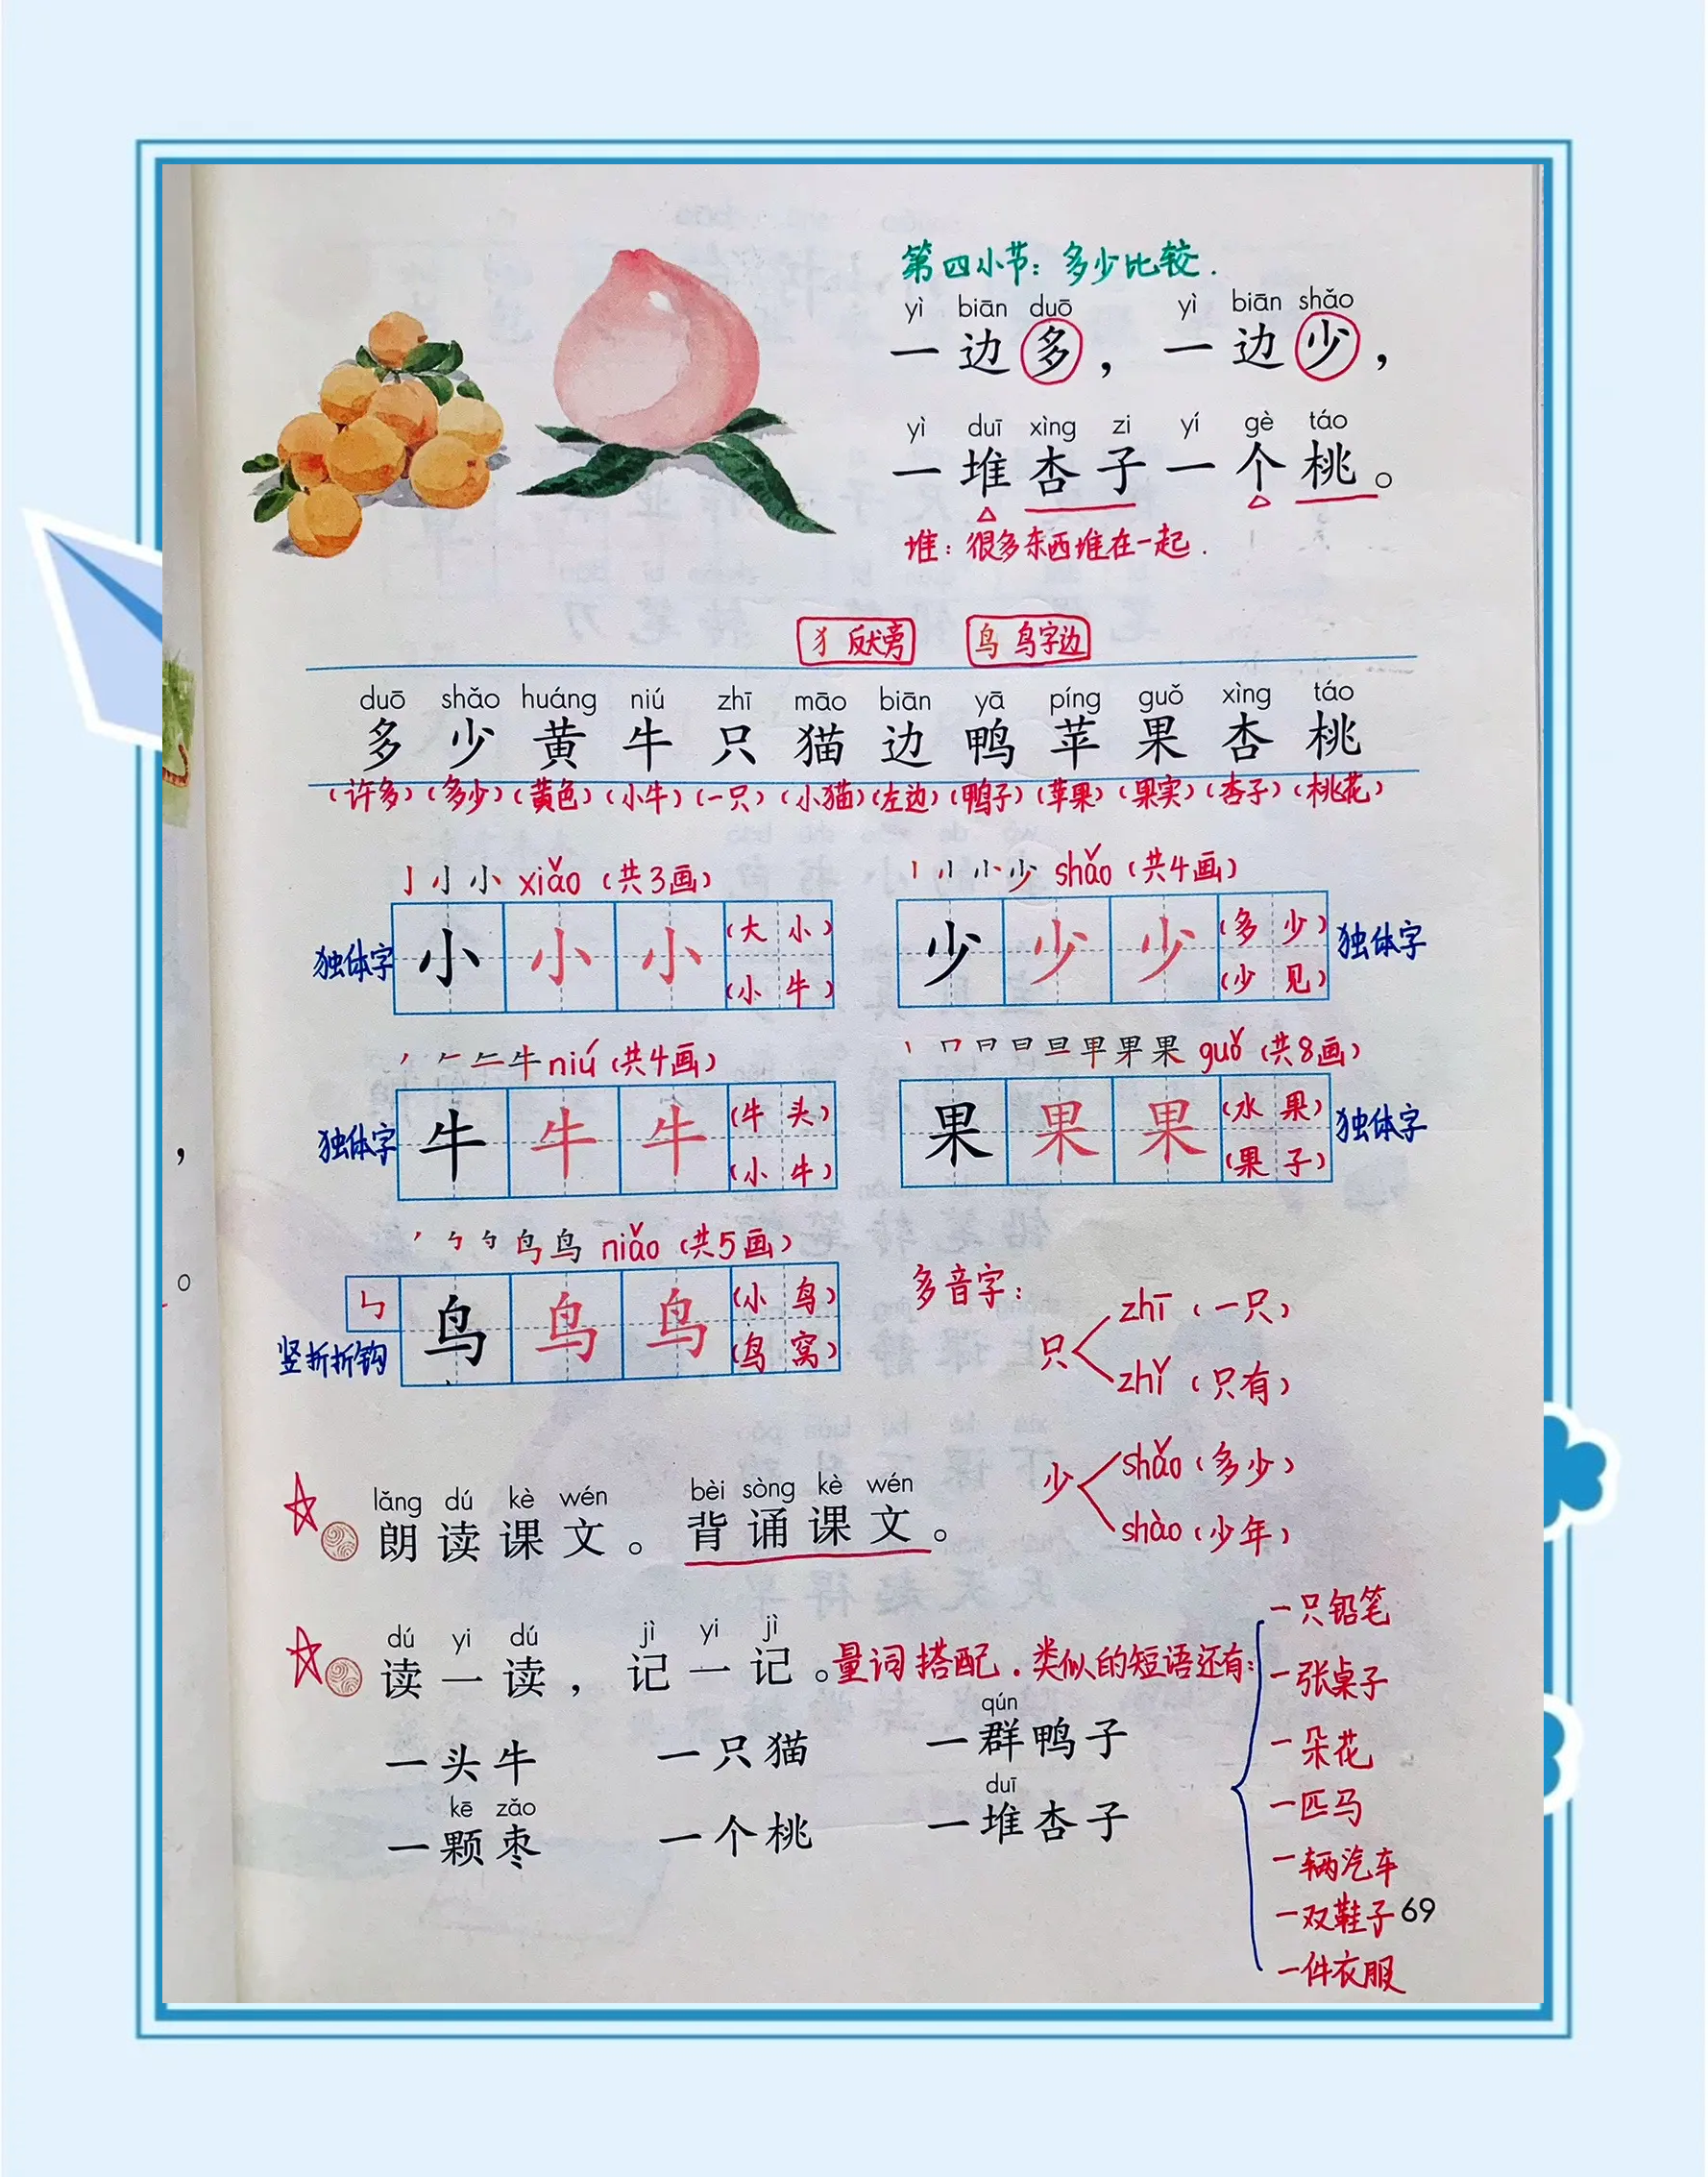 第四小节：多少比较.
yì biān duō yì biān shǎo
一边多，一边少，
yì duī xìng zi yí gè táo
一堆杏子一个桃。
堆：很多东西堆在一起.
犭 反犬旁 鸟 鸟字边
duō shǎo huáng niú zhī māo biān yā píng guǒ xìng táo
多 少 黄 牛 只 猫 边 鸭 苹 果 杏 桃
（许多）（多少）（黄色）（小牛）（一只）（小猫）（左边）（鸭子）（苹果）（果实）（杏子）（桃花）
小 xiǎo（共3画）
独体字 小 小 小（大 小）
（小 牛）
少 shǎo（共4画）
少 少 少（多 少）独体字
（少 见）
牛 niú（共4画）
独体字 牛 牛 牛（牛 头）
（小 牛）
丨 冂 日 日 旦 早 果 果 guǒ（共8画）
果 果 果（水 果）独体字
（果 子）
鸟 鸟 niǎo（共5画）
㇉ 鸟 鸟 鸟（小 鸟）
竖折折钩（鸟 窝）
多音字：
只 zhī（一只）
zhǐ（只有）
少 shǎo（多少）
shào（少年）
lǎng dú kè wén bèi sòng kè wén
朗读课文。背诵课文。
dú yi dú jì yi jì
读一读，记一记。量词搭配．类似的短语还有：
qún
一头牛 一只猫 一群鸭子
kē zǎo duī
一颗枣 一个桃 一堆杏子
一只铅笔
一张桌子
一朵花
一匹马
一辆汽车
一双鞋子
69
一件衣服
，
。